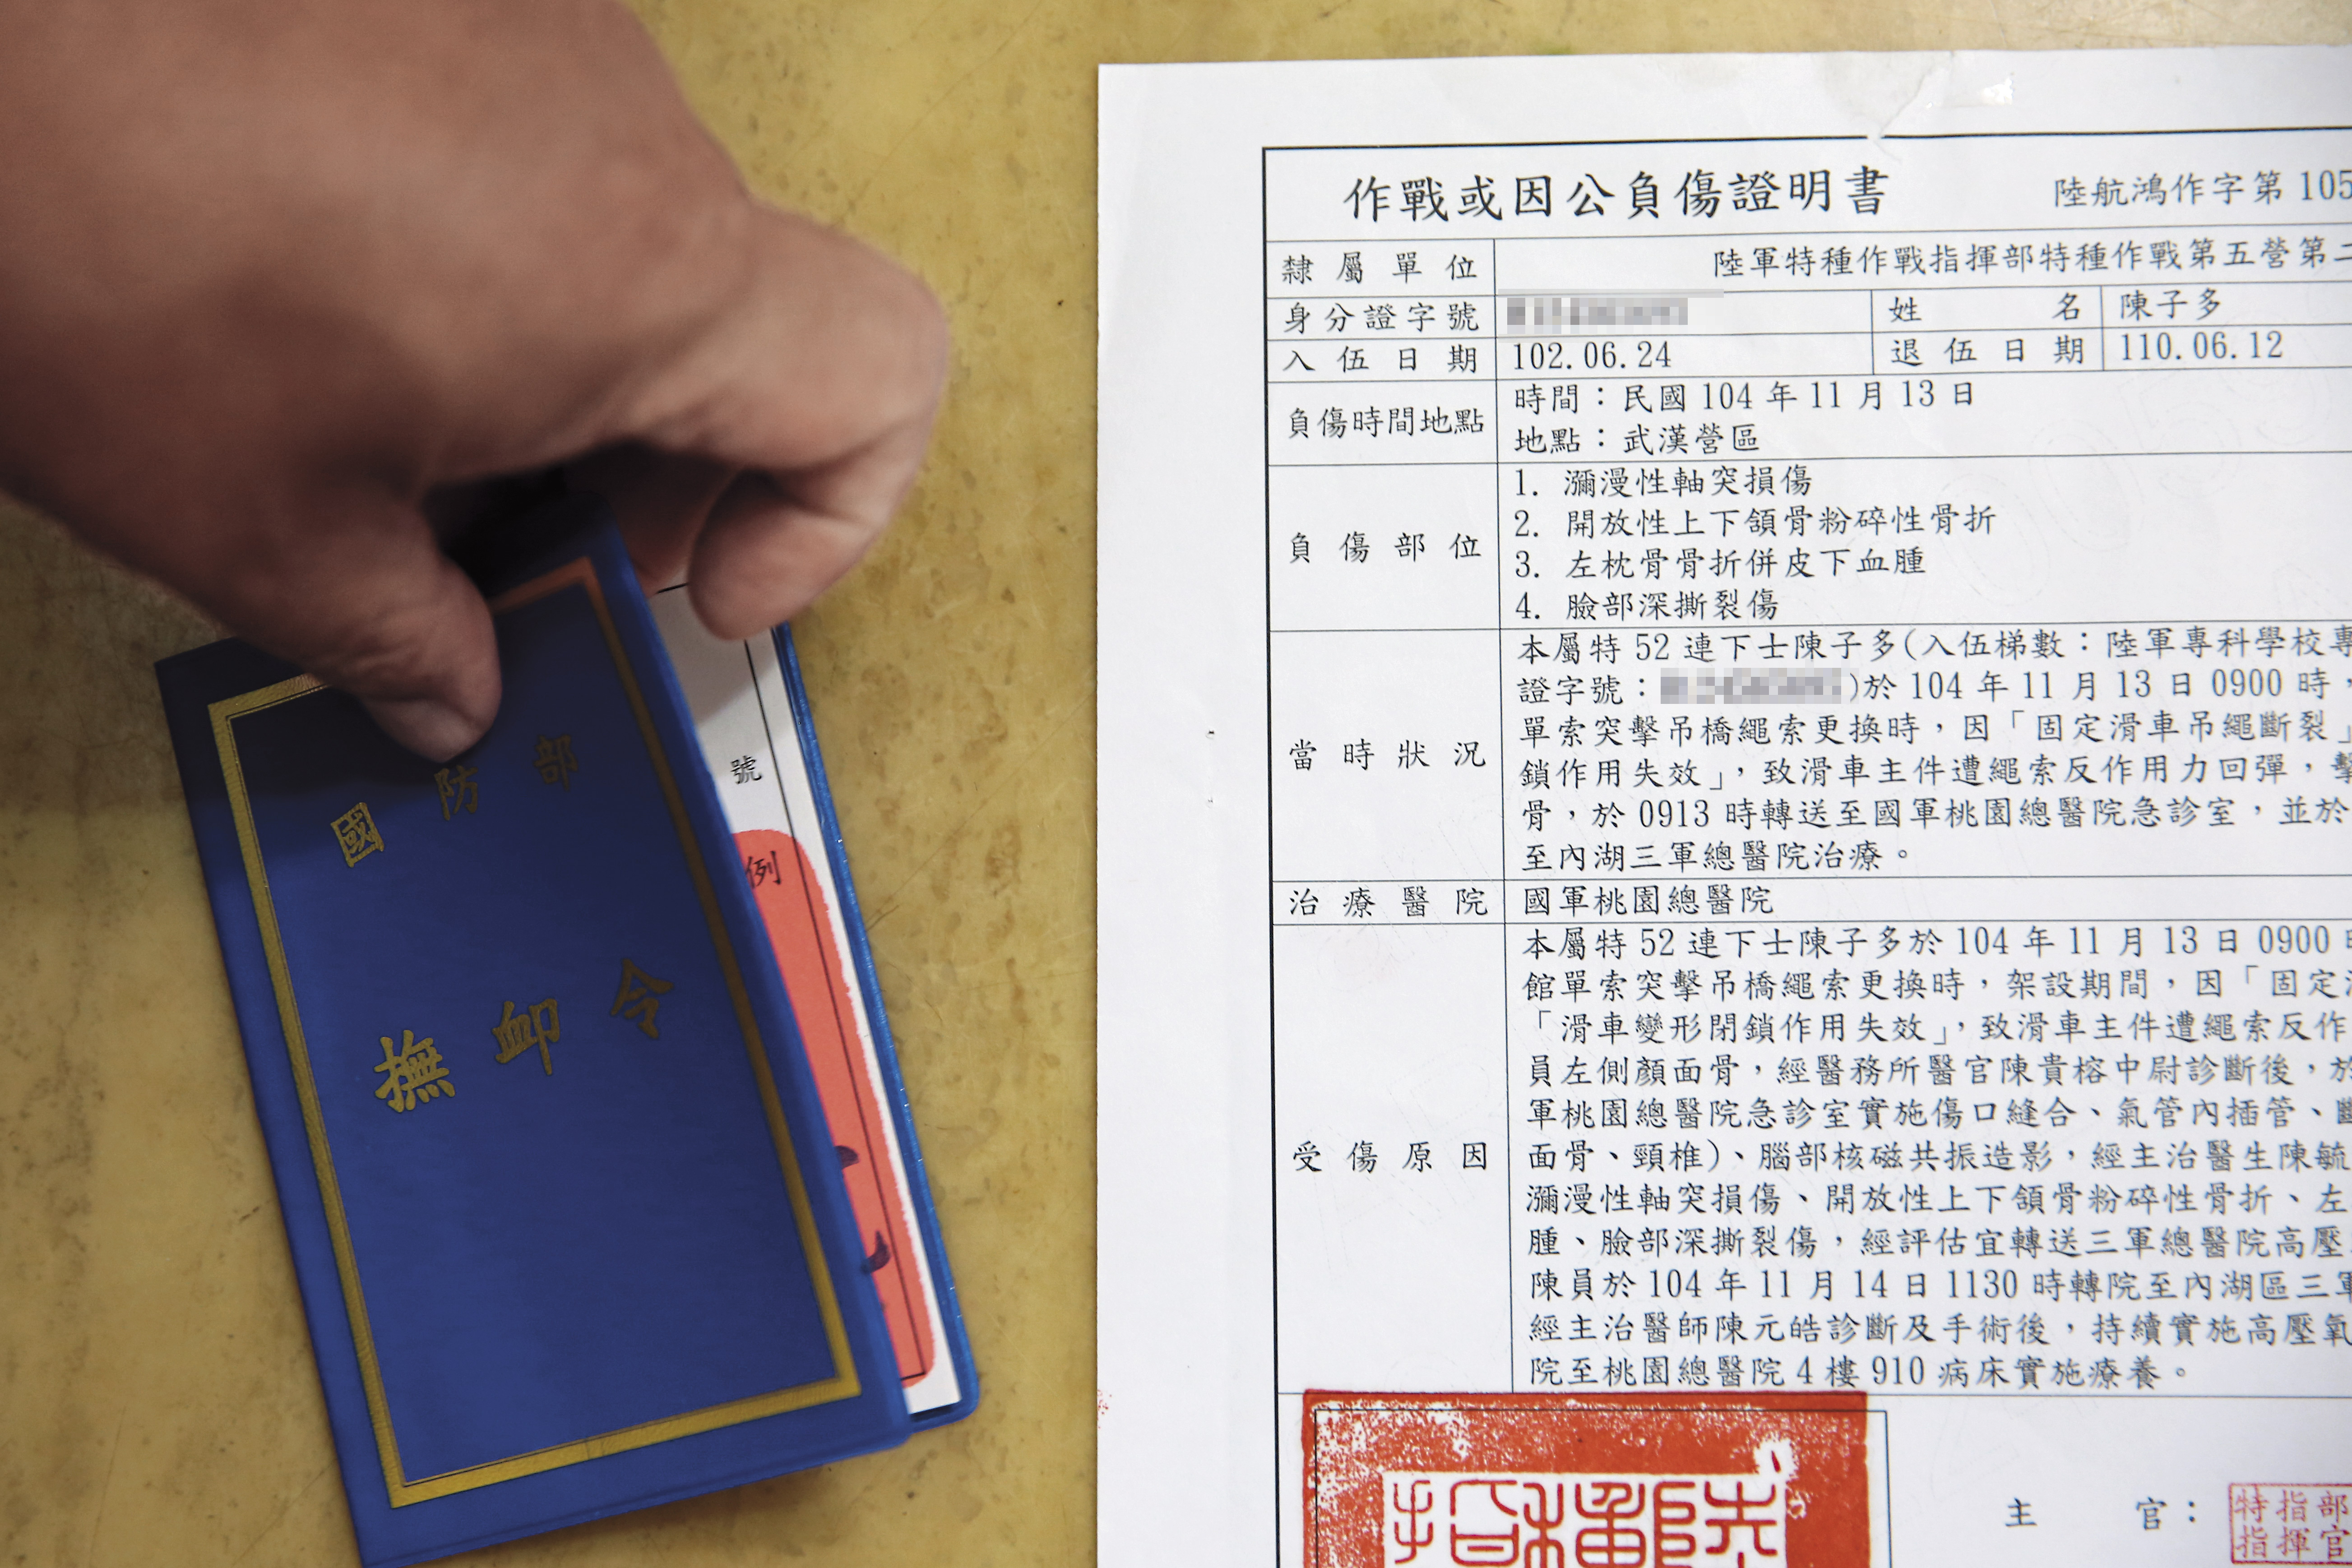 國防部
撫卹令
號
例
作戰或因公負傷證明書 陸航鴻作字第105
隸屬單位 陸軍特種作戰指揮部特種作戰第五營第二
身分證字號 姓名 陳子多
入伍日期 102.06.24 退伍日期 110.06.12
負傷時間地點 時間：民國104年11月13日
地點：武漢營區
負傷部位 1. 瀰漫性軸突損傷
2. 開放性上下頜骨粉碎性骨折
3. 左枕骨骨折併皮下血腫
4. 臉部深撕裂傷
當時狀況 本屬特52連下士陳子多(入伍梯數：陸軍專科學校專
證字號：)於104年11月13日0900時，
單索突擊吊橋繩索更換時，因「固定滑車吊繩斷裂」
鎖作用失效」，致滑車主件遭繩索反作用力回彈，擊
骨，於0913時轉送至國軍桃園總醫院急診室，並於
至內湖三軍總醫院治療。
治療醫院 國軍桃園總醫院
受傷原因 本屬特52連下士陳子多於104年11月13日0900時
館單索突擊吊橋繩索更換時，架設期間，因「固定滑
「滑車變形閉鎖作用失效」，致滑車主件遭繩索反作
員左側顏面骨，經醫務所醫官陳貴榕中尉診斷後，於
軍桃園總醫院急診室實施傷口縫合、氣管內插管、斷
面骨、頸椎)、腦部核磁共振造影，經主治醫生陳毓
瀰漫性軸突損傷、開放性上下頜骨粉碎性骨折、左
腫、臉部深撕裂傷，經評估宜轉送三軍總醫院高壓
陳員於104年11月14日1130時轉院至內湖區三軍
經主治醫師陳元皓診斷及手術後，持續實施高壓氧
院至桃園總醫院4樓910病床實施療養。
主官：
特指部
指揮官